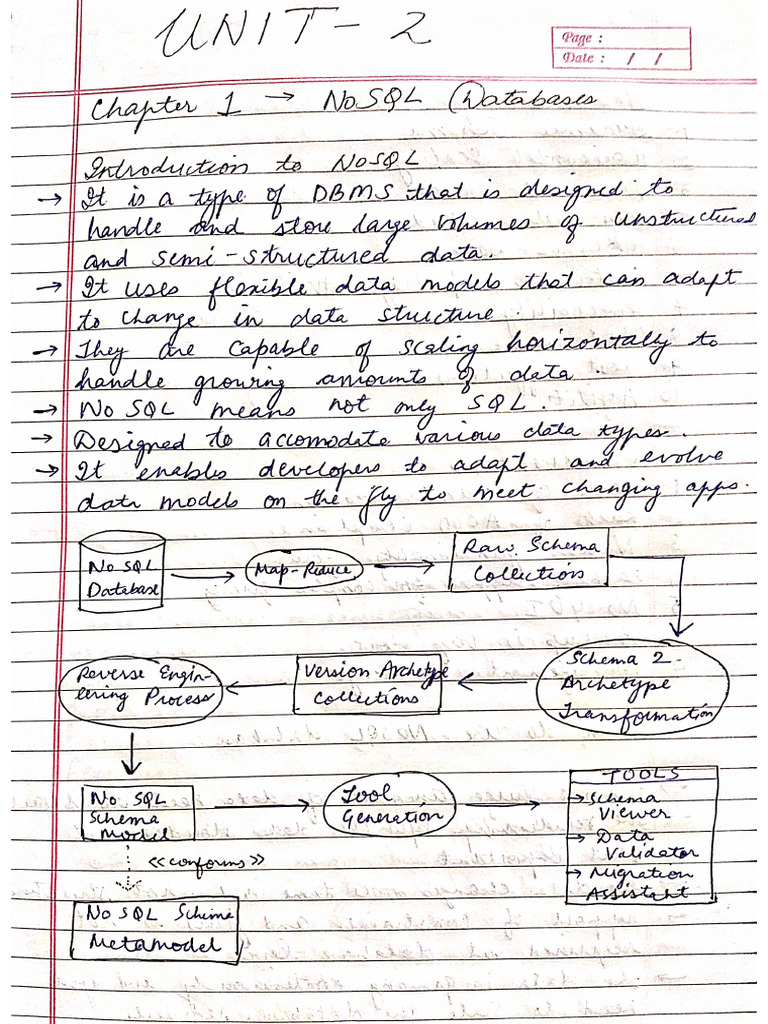 UNIT - 2
Page :
Date : / /
Chapter 1 → NoSQL Databases
Introduction to NOSQL
→ It is a type of DBMS that is designed to
handle and store large volumes of unstructured
and semi-structured data.
→ It uses flexible data models that can adapt
to change in data structure.
→ They are capable of scaling horizontally to
handle growing amounts of data.
→ No SQL means not only SQL.
→ Designed to accomodate various data types.
→ It enables developers to adapt and evolve
data models on the fly to meet changing apps.
No SQL
Database
Map-Reduce
Raw Schema
Collections
Reverse Engin-
eering Process
Version Archetype
Collections
Schema 2-
Archetype
Transformation
No SQL
Schema
Model
Tool
Generation
TOOLS
→ Schema
Viewer
→ Data
Validator
→ Migration
Assistant
<<conforms>>
No SQL Schema
Metamodel